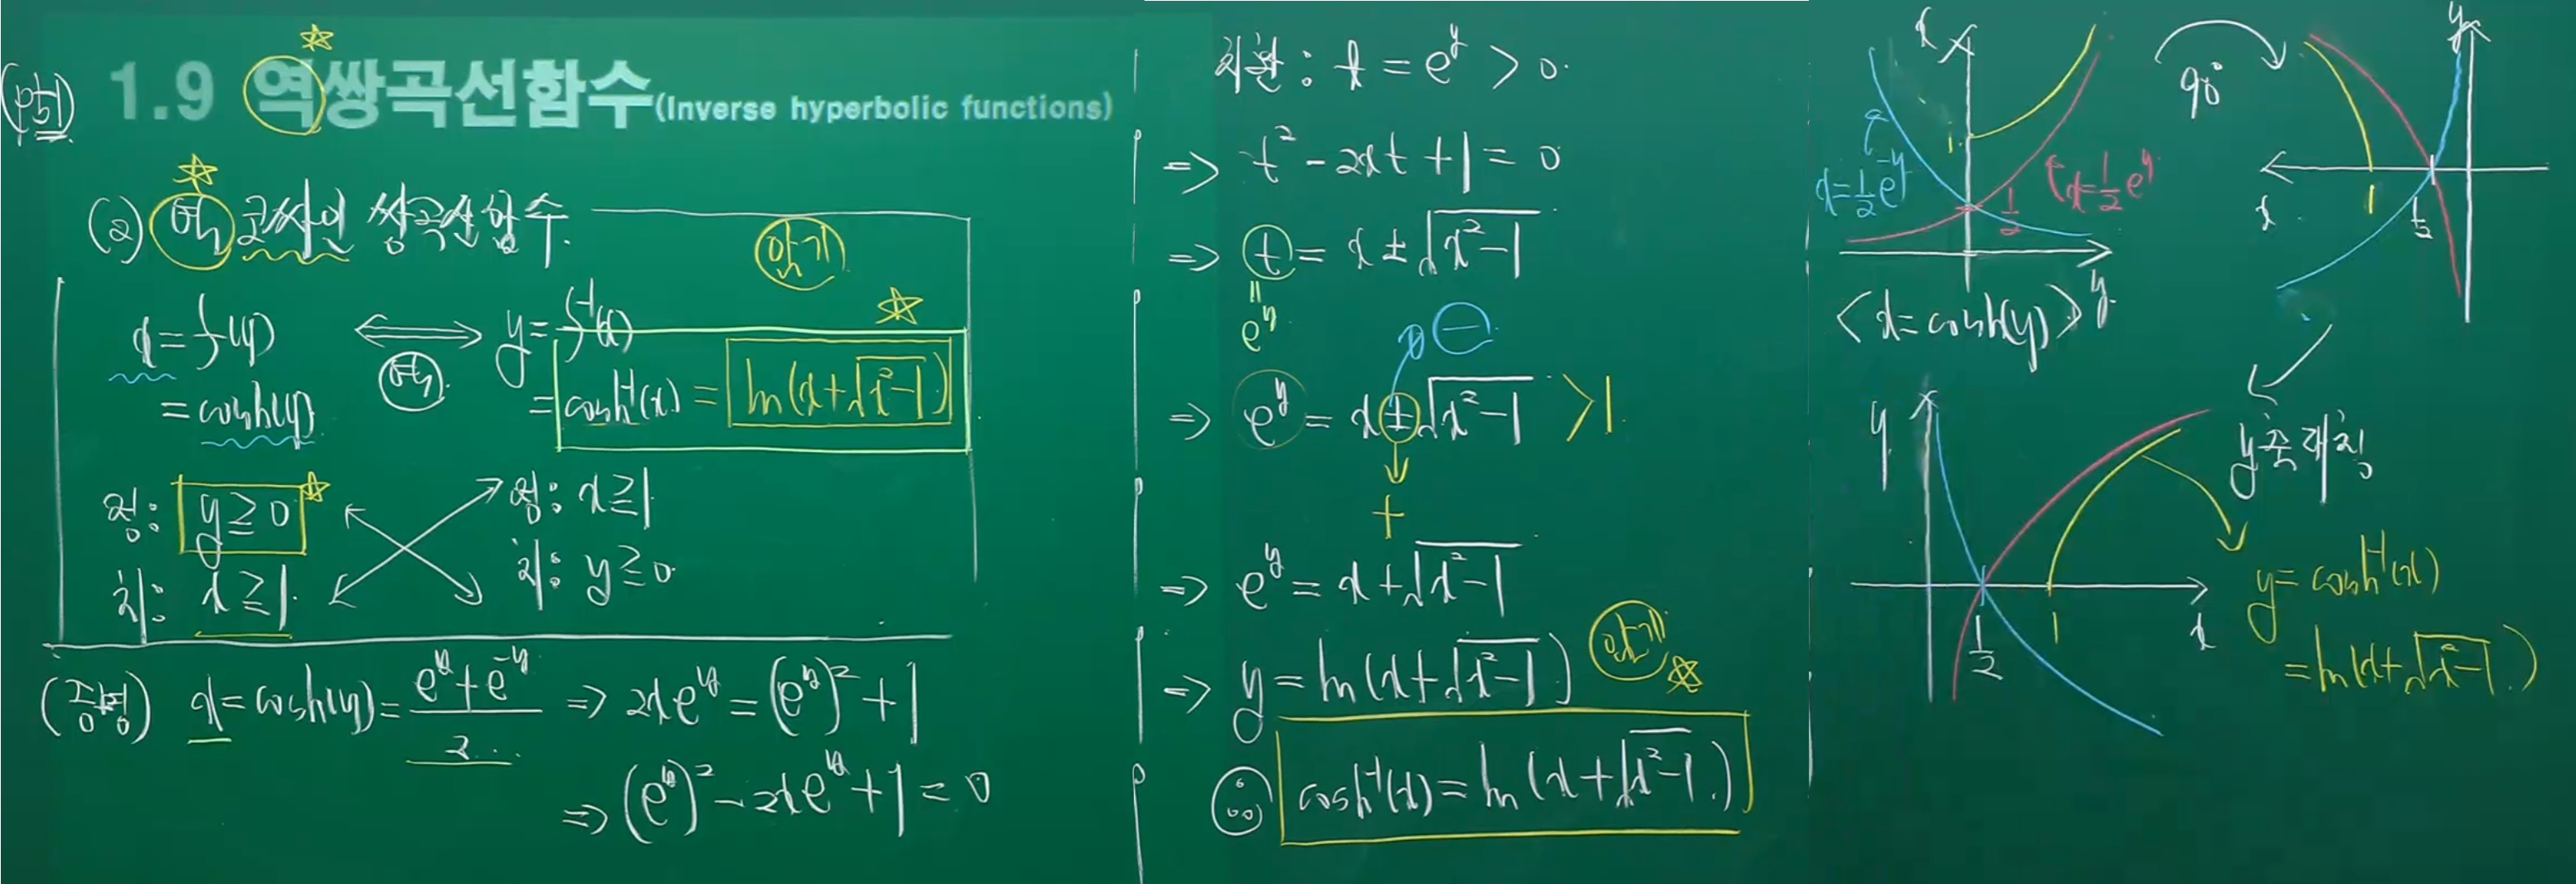 (p51)
1.9 역쌍곡선함수(Inverse hyperbolic functions)
(2) 역 코싸인 쌍곡선함수.
암기
x = f(y) ⟺ y = f⁻¹(x)
역
= cosh(y) = cosh⁻¹(x) = ln(x+√(x²-1))
정: y ≧ 0 정: x ≧ 1
치: x ≧ 1 치: y ≧ 0
(증명) x = cosh(y) = (e^y + e^-y)/2 ⇒ 2xe^y = (e^y)² + 1
⇒ (e^y)² - 2xe^y + 1 = 0
치환: t = e^y > 0
⇒ t² - 2xt + 1 = 0
⇒ t = x ± √(x²-1)
=
e^y
⊖
⇒ e^y = x ± √(x²-1) > 1
+
⇒ e^y = x + √(x²-1)
⇒ y = ln(x+√(x²-1)) 암기
∴ cosh⁻¹(x) = ln(x+√(x²-1))
x
1
x=½e^-y
x=½e^y
½
y
<x = cosh(y)>
90°
y
x
1
½
y축 대칭
y
½
1
x
y = cosh⁻¹(x)
= ln(x+√(x²-1))